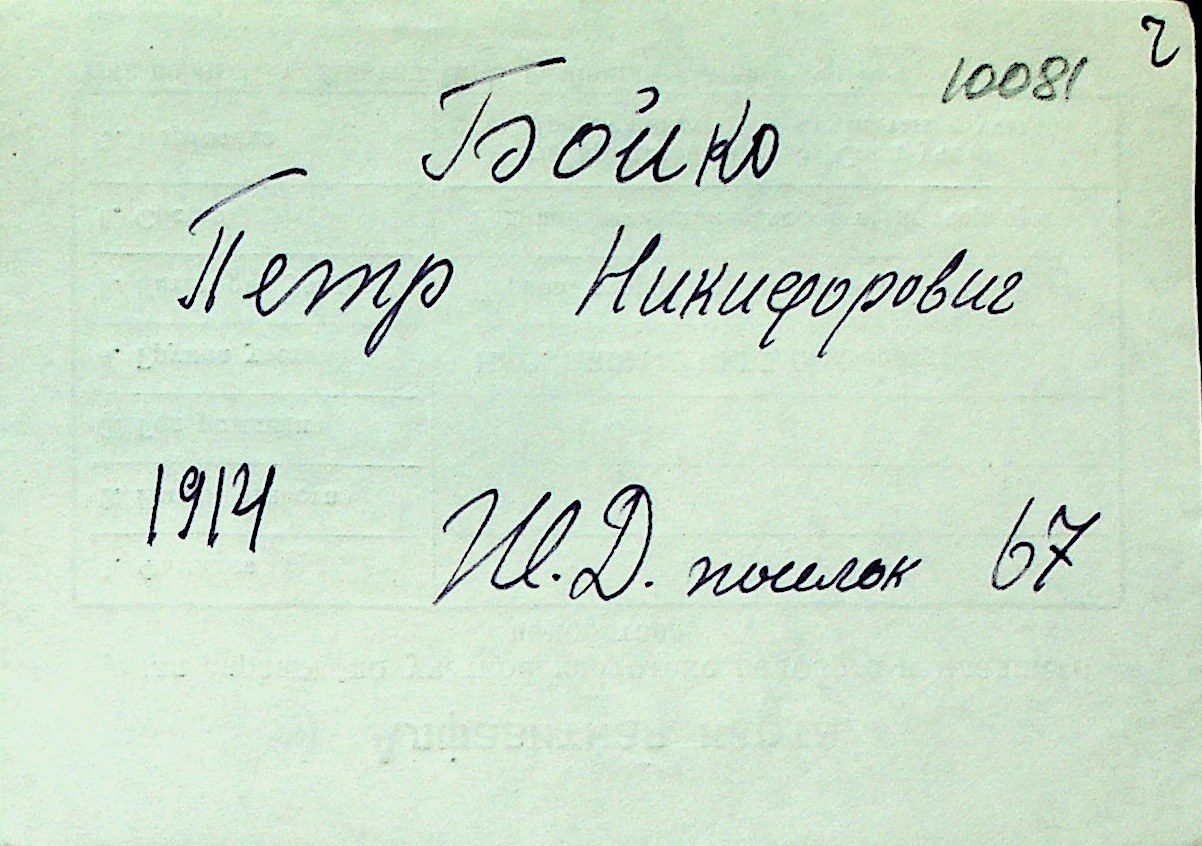 10081
Бойко
Петр Никифорович
1914 Ж.Д. поселок 67